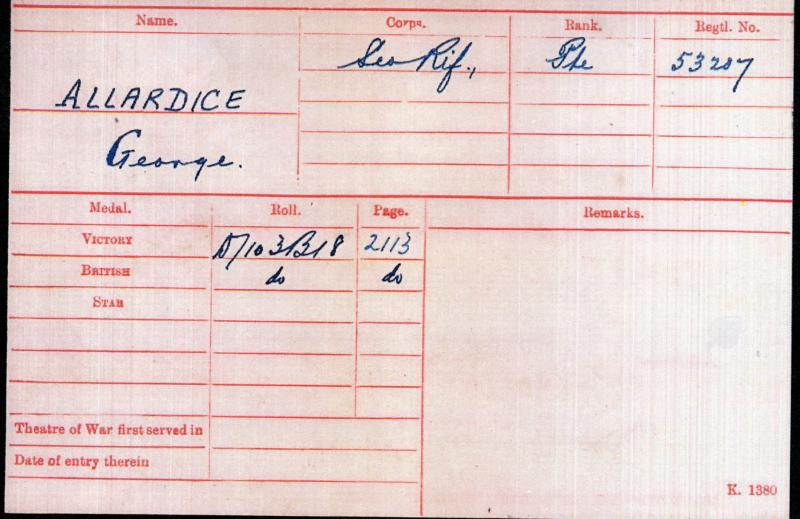 Name. Corps. Rank. Regtl. No.
Sco Rif., Pte 53207
ALLARDICE
George.
Medal. Roll. Page. Remarks.
VICTORY D/103B18 2113
BRITISH do do
STAR
Theatre of War first served in
Date of entry therein
K. 1380